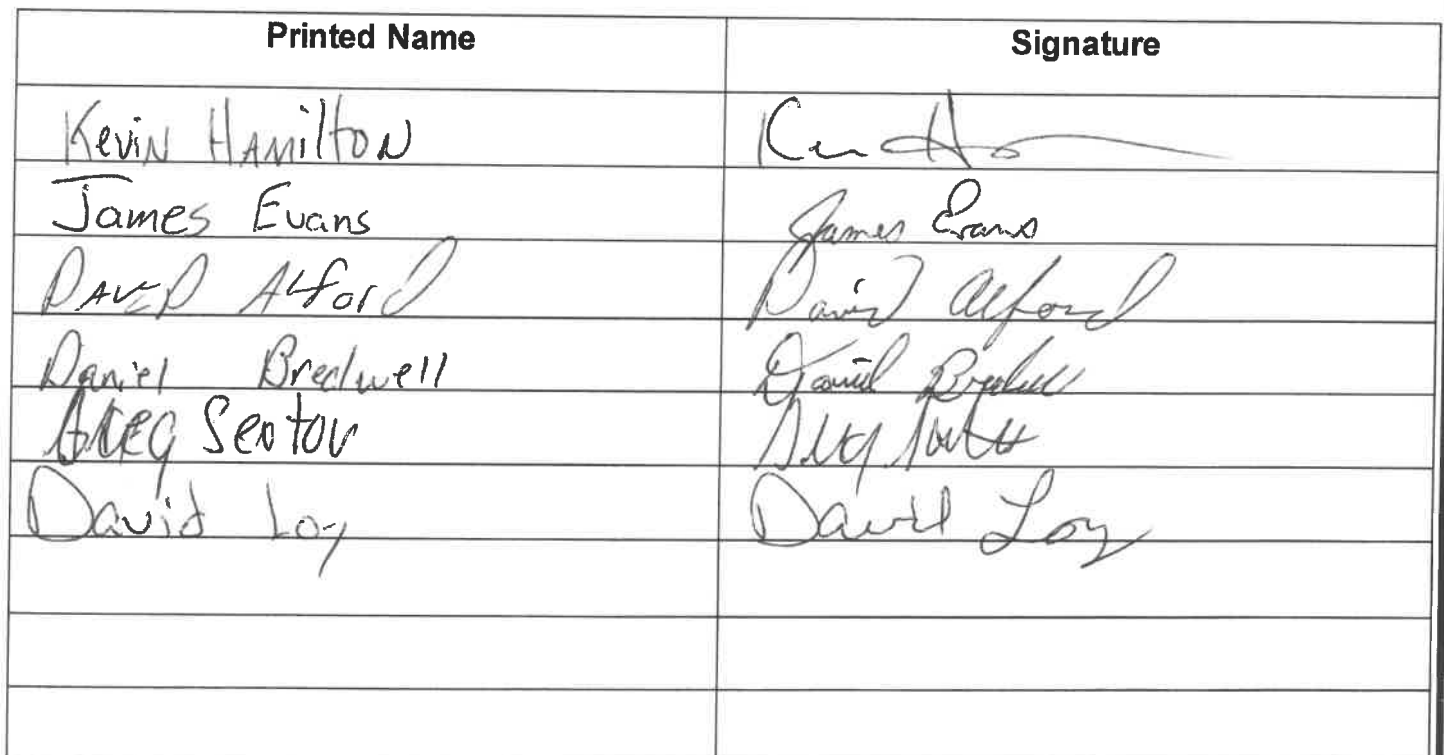 Printed Name Signature
Kevin Hamilton
James Evans James Evans
David Alford David Alford
Daniel Bredwell Daniel
Greg
David Loy David Loy